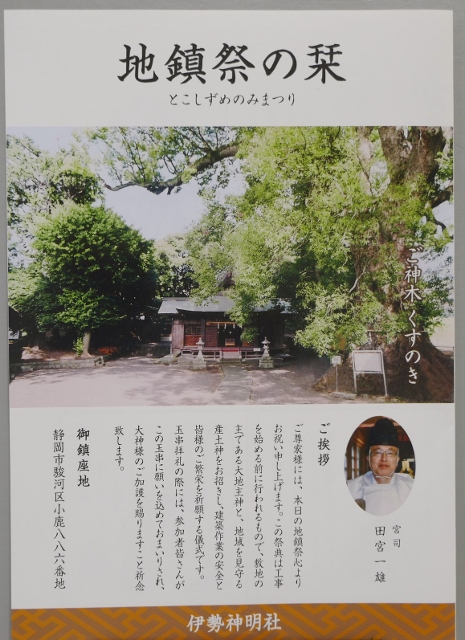 地鎮祭の栞
とこしずめのみまつり
ご神木くすのき
ご挨拶
ご尊家様には、本日の地鎮祭心より
お祝い申し上げます。この祭典は工事
を始める前に行われるもので、敷地の
主である大地主神と、地域を見守る
産土神をお招きし、建築作業の安全と
皆様のご繁栄を祈願する儀式です。
玉串拝礼の際には、参加者皆さんが
この玉串に願いを込めておまいりされ、
大神様のご加護を賜りますこと祈念
致します。
宮司
田宮一雄
御鎮座地
静岡市駿河区小鹿八八六番地
伊勢神明社